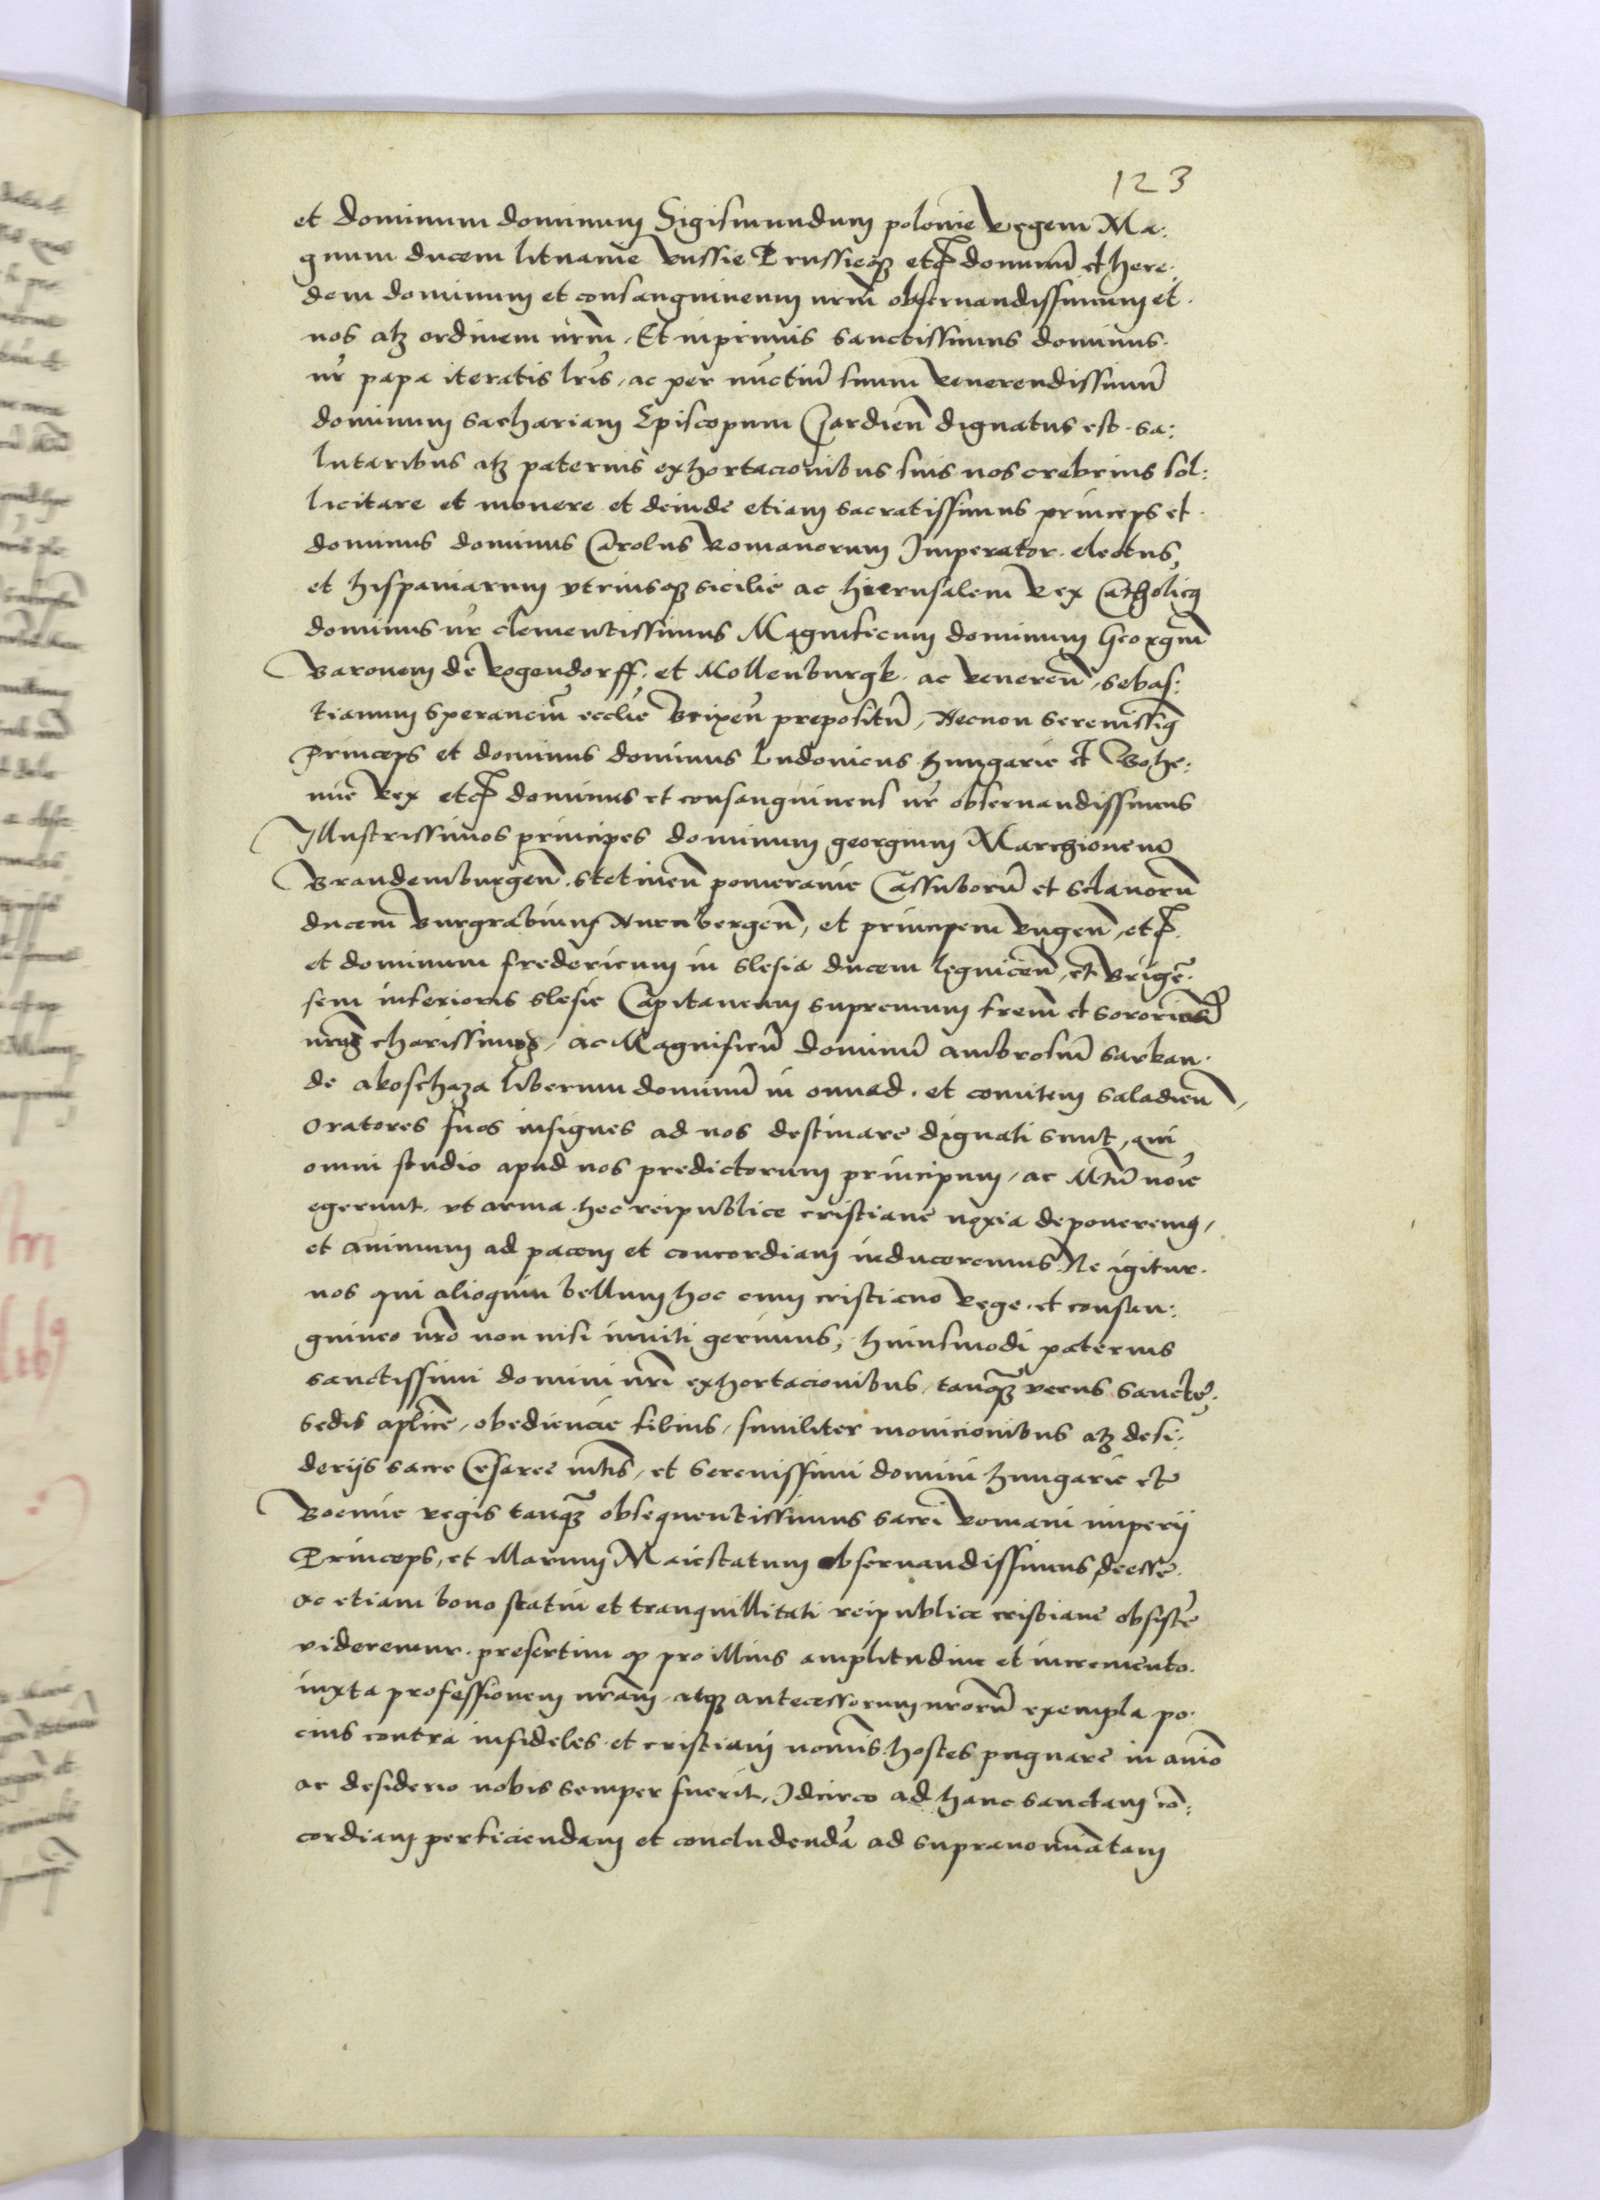 123
et dominum dominum Sigismundum polonie Regem Ma:
gnum ducem lituanie Russie Prussieqꝫ etcꝭ dominū et here:
dem dominum et consanguineum nr̄m obseruandissimum et
nos atqꝫ ordinem nr̄m. Et inprimis sanctissimus dominus
nr̄ papa iteratis lr̄is, ac per nūctiū suum Reuerendissimū
dominum sachariam Episcopum Gardien̄ dignatus est sa:
lutaribus atqꝫ paternis exhortacionibus suis nos crebrius sol:
licitare et monere et deinde etiam sacratissimus princeps et
dominus dominus Carolus Romanorum Imperator electus,
et hispaniarum vtriusqꝫ sicilie ac hierusalem Rex Catholicꝰ
dominus nr̄ clementissimus Magnificum dominum Georgiū
Baronem de Rogendorff et Mollenburgk ac Veneren̄, sebas:
tianum speranciū ecclīe Brixen̄ prepositū, Necnon serenissimꝰ
Princeps et dominus dominus Ludouicus hungarie et Bohe:
mie Rex etcꝭ dominus et consanguineus nr̄ obseruandissimus
Illustrissimos principes dominum georgium Marchionem
Brandemburgen̄, stetinen̄ pomeranie Cassuborū et sclauorū
ducem Burgrabium Nurnbergen̄, et principem Rugen̄, etcꝭ
et dominum fredericum in slesia ducem legnicen̄, et Brigē:
sem inferioris slesie Capitaneum supremum frēm et sororiū
nr̄os charissimos, ac Magnificū dominū ambrosiū sarkan
de akoschaza liberum dominū in onnad. et comitem saladien̄,
Oratores suos insignes ad nos destinare dignati sunt, qui
omni studio apud nos predictorum principum, ac Mtū noīe
egerunt, vt arma hec reipublice cristiane noxia deponeremꝰ,
et animum ad pacem et concordiam induceremus Ne igitur
nos qui alioquin bellum hoc cum cristiano Rege et consan:
guineo nr̄o non nisi inuiti gerimus, huiusmodi paternis
sanctissimi domini nr̄i exhortacionibus, tanqꝫ verus sancte
sedis aplīce, obediencie filius, similiter monicionibus atqꝫ desi:
derijs sacre Cesaree mt̄is, et serenissimi domini hungarie et
Boemie regis tanqꝫ obsequentissimus sacri Romani imperij
Princeps, et illarum Maiestatum obseruandissimus deesse
ac etiam bono statui et tranquillitati reipublice cristiane obsistē
videremur. presertim qꝫ pro illius amplitudine et incremento
iuxta professionem nr̄am, atqꝫ antecessorum nr̄orū exempla po:
cius contra infideles et cristiani nominis hostes pugnare in animo
ac desiderio nobis semper fuerit, Idcirco ad hanc sanctam cō:
cordiam perficiendam et concludendā ad supranominatam